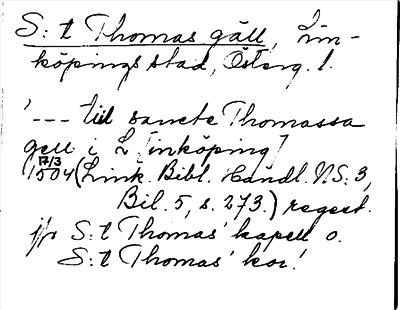 S:t Thomas gäll, Lin-
köpings stad, Österg. l.
' --- till sancte Thomassa
gell i L[inköping]
17/3
1504 (Link. Bibl. Handl. N.S. 3,
Bil. 5, s. 273.) regest.
jfr S:t Thomas' kapell o.
S:t Thomas' kor!